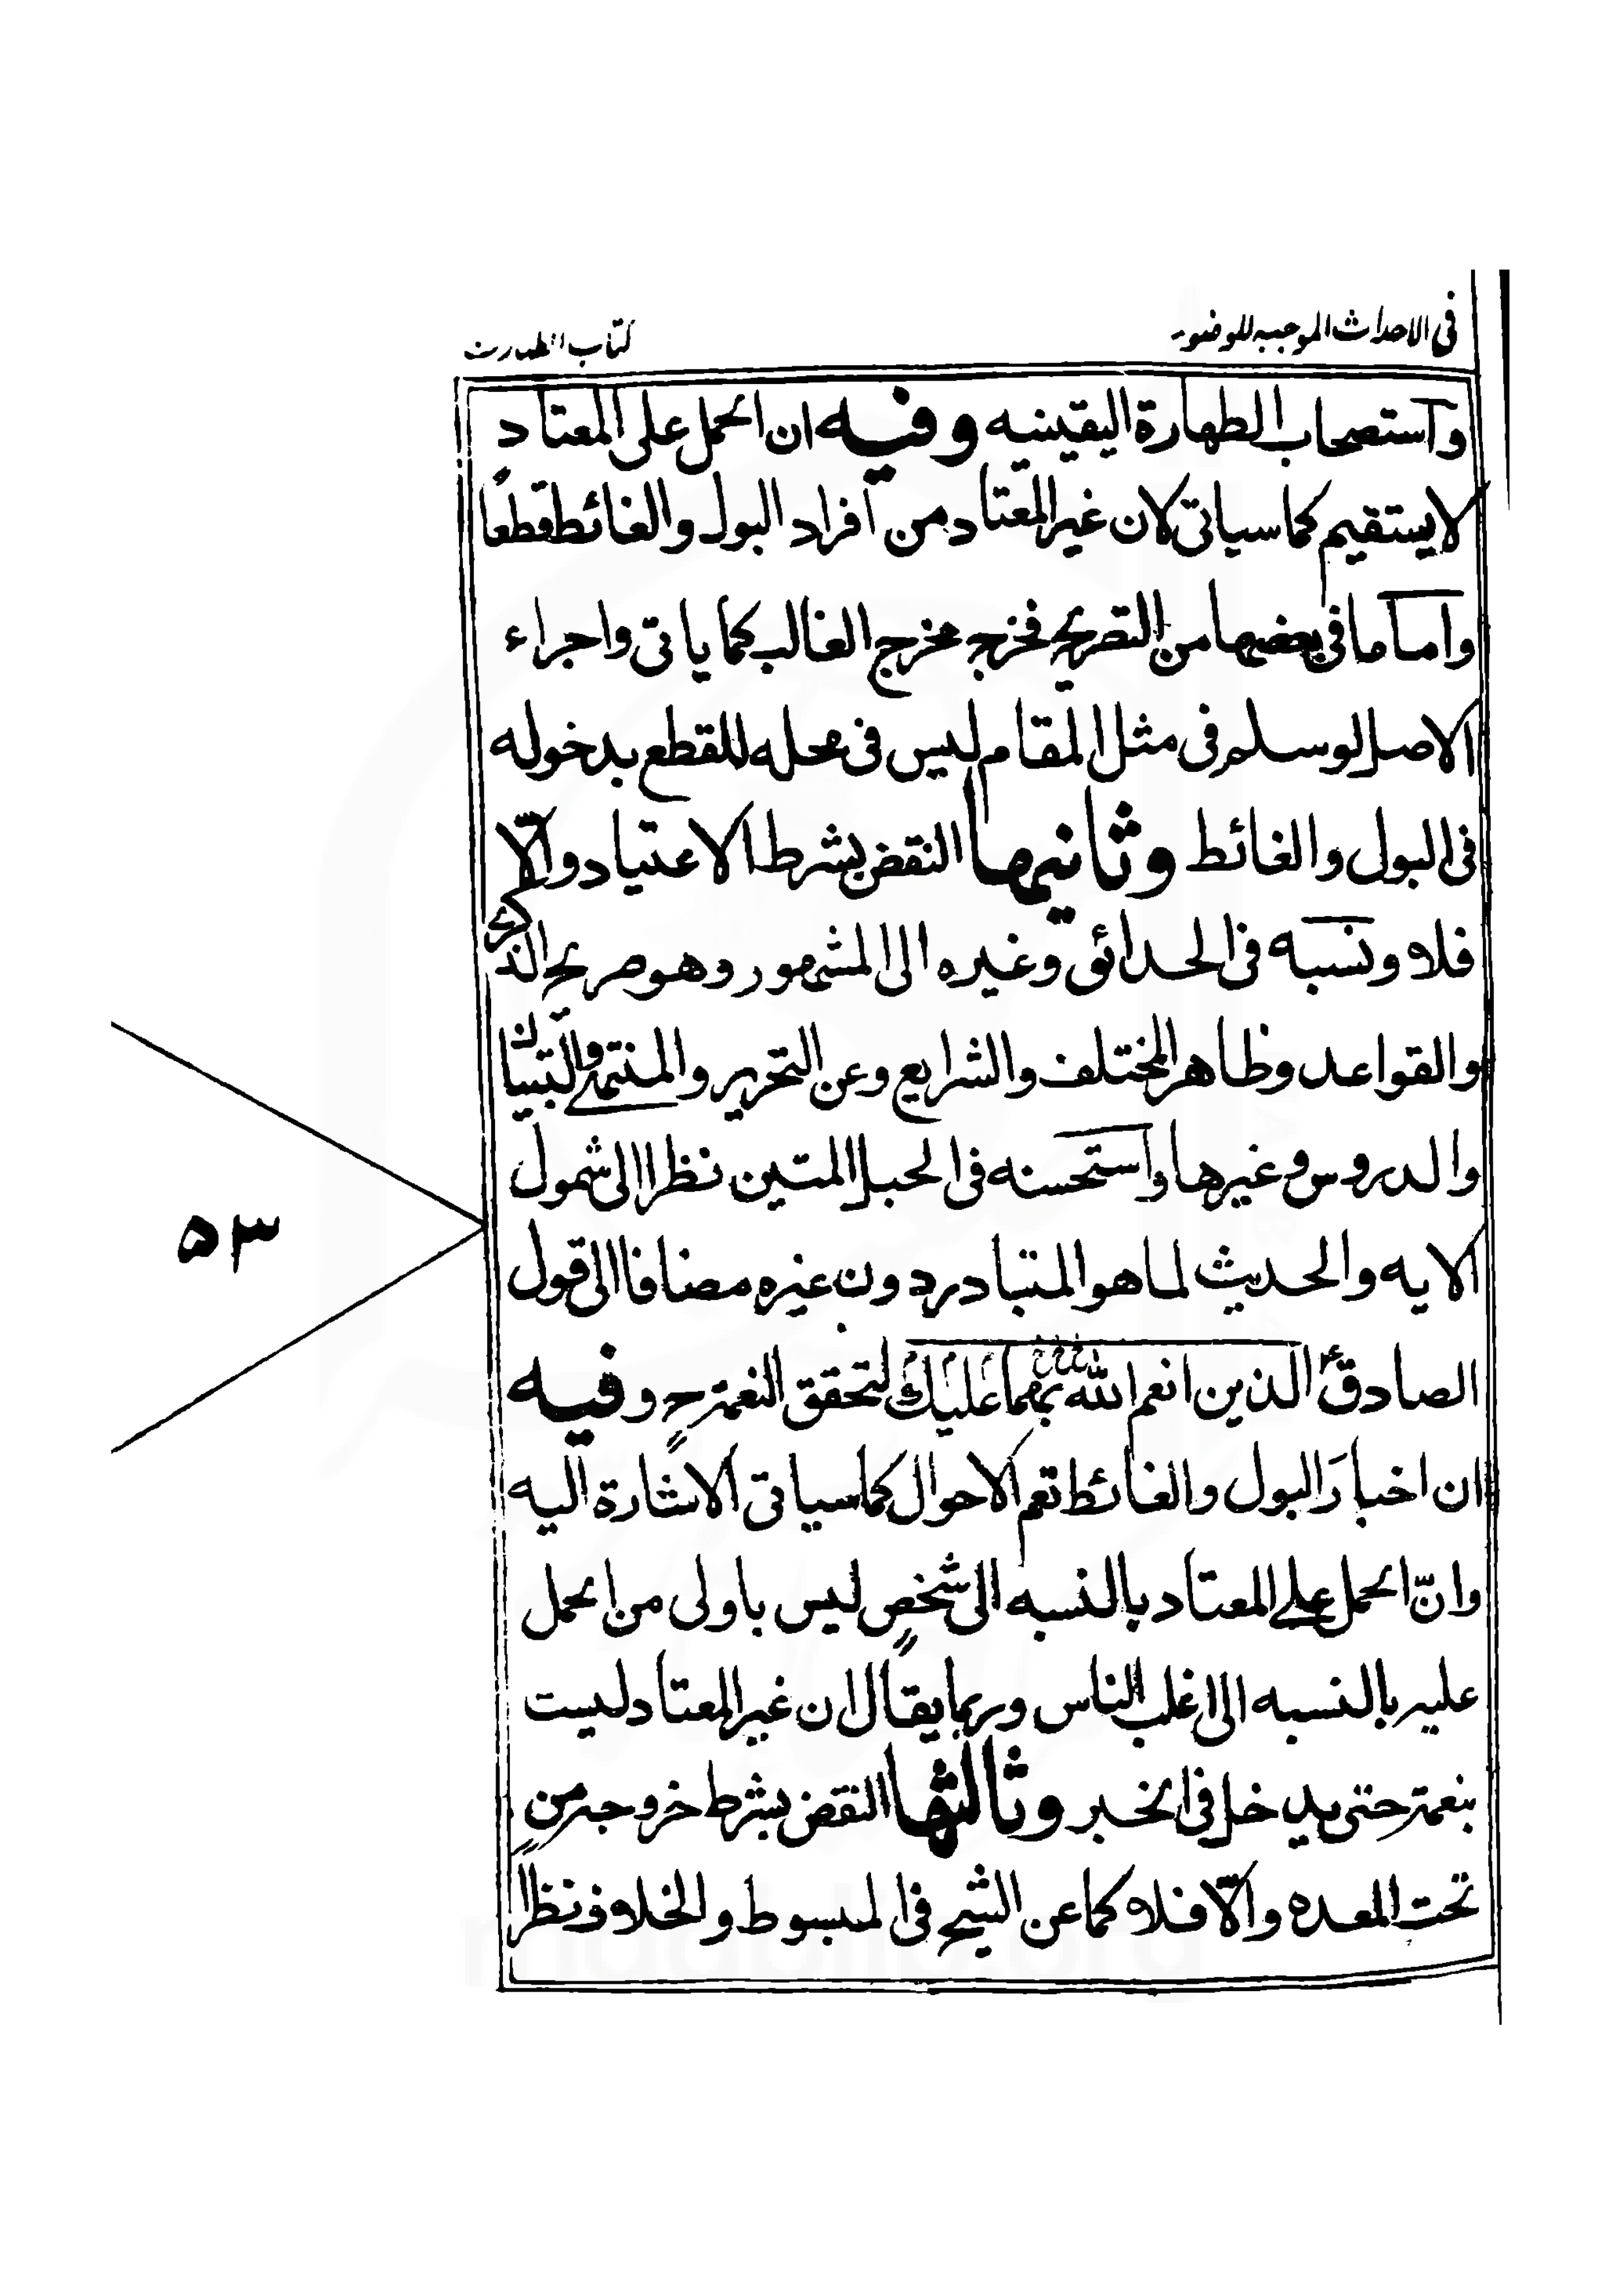 فى الاحداث الموجبه للوضوء
كتاب الطهارت
واستصحاب الطهارة اليقينيه وفيه ان الحمل على المعتاد
لايستقيم كما سياتى لان غير المعتاد من افراد البول والغائط قطعا
واما ما فى بعضها من التصريح فخرج مخرج الغالب كما ياتى واجراء
الاصل لو سلم فى مثل المقام ليس فى محله للقطع بدخوله
فى البول والغائط وثانيها النقض بشرط الاعتياد والّا
فلا ونسبه فى الحدائق وغيره الى المشهور وهو صريح الذكرى
والقواعد وظاهر المختلف والشرايع وعن التحرير والمنتهى والتبيان
والدروس وغيرها واستحسنه فى الحبل المتين نظرا الى شمول
الايه والحديث لما هو المتبادر دون غيره مضافا الى قول
الصادق ع الذين انعم الله بهما عليك لتحقق النعمة ح وفيه
ان اخبار البول والغائط تعم الاحوال كما سياتى الاشارة اليه
وانّ الحمل على المعتاد بالنسبه الى شخص ليس باولى من الحمل
عليه بالنسبه الى اغلب الناس وربما يقال ان غير المعتاد ليست
بنعمة حتى يدخل فى الخبر وثالثها النقض بشرط خروجه من
تحت المعده والّا فلا كما عن الشيخ فى المبسوط والخلاف نظرا
۵۳